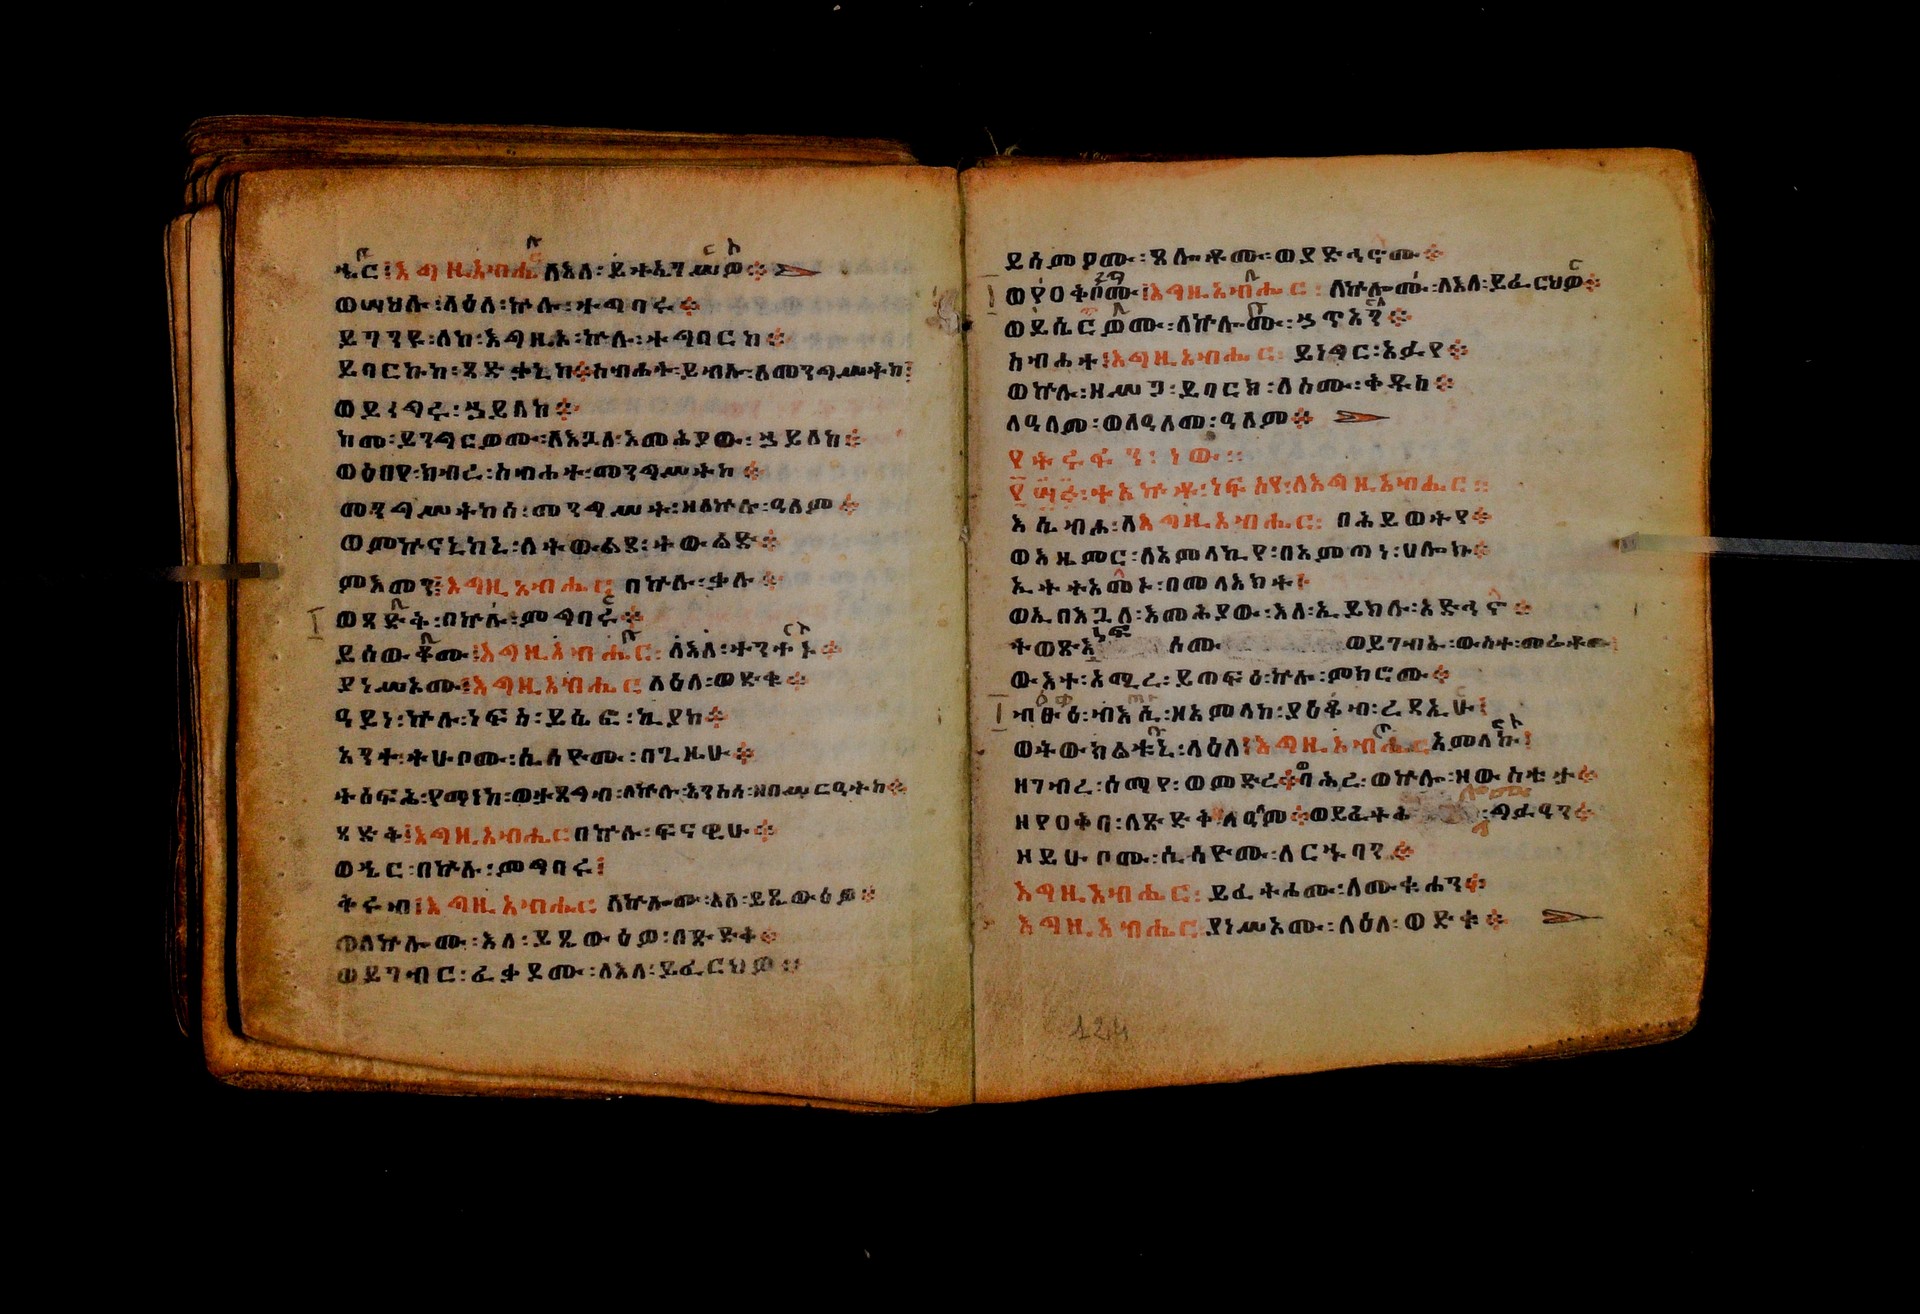 ኄር፤እግዚአብሔር ለእለ፡ይትኤገሥዎ፨
ወሣህሉ፡ላዕለ፡ኵሉ፡ተግባሩ፨
ይገንዩ፡ለከ፡እግዚኦ፡ኵሉ፡ተግባርከ፨
ይባርኩከ፡ጻድቃኒከ፨ስብሐተ፡ይብሉ፡ለመንግሥትከ፤
ወይነግሩ፡ኃይለከ፨
ከመ፡ይንግርዎሙ፡ለእጓለ፡እመሕያው፡ኃይለከ፨
ወዕበየ፡ክብረ፡ስብሐተ፡መንግሥትከ፨
መንግሥትከሰ፡መንግሥት፡ዘለኵሉ፡ዓለም፨
ወምኵናኒከኒ፡ለትውልደ፡ትውልድ፨
ምእመን፤እግዚአብሔር፡በኵሉ፡ቃሉ፨
ወጻድቅ፡በኵሉ፡ምግባሩ፨
ይሰውቆሙ፤እግዚአብሔር፡ለእለ፡ተንተኑ፨
ያነሥኦሙ፤እግዚአብሔር ለዕለ፡ወድቁ፨
ዓይነ፡ኵሉ፡ነፍስ፡ይሴፎ፡ኪያከ፨
አንተ፡ትሁቦሙ፡ሲሳዮሙ፡በጊዜሁ፨
ትሰፍሕ፡የማነከ፡ወታጸግብ፡ለኵሉ፡እንስሳ፡ዘበሥርዓትከ፨
ጻድቅ፤እግዚአብሔር በኵሉ፡ፍናዊሁ፨
ወኄር፡በኵሉ፡ምግባሩ፤
ቅሩብ፤እግዚአብሔር ለኵሎሙ፡እለ፡ይጼውዕዎ፨
ወለኵሎሙ፡እለ፡ይጼውዕዎ፡በጽድቅ፨
ወይገብር፡ፈቃዶሙ፡ለእለ፡ይፈርህዎ፨
ይሰምዖሙ፡ጸሎቶሙ፡ወያድኅኖሙ፨
ወየዐቅቦሙ፤እግዚአብሔር፡ለኵሎሙ፡ለእለ፡ይፈርህዎ፨
ወይሴርዎሙ፡ለኵሎሙ፡ኃጥአን፨
ስብሐተ፤እግዚአብሔር፡ይነግር፡አፉየ፨
ወኵሉ፡ዘሥጋ፡ይባርክ፡ለስሙ፡ቅዱስ፨
ለዓለም፡ወለዓለመ፡ዓለም፨
ተአኵቶ፡ነፍስየ፡ለእግዚአብሔር፨
እሴብሖ፡ለእግዚአብሔር፡በሕይወትየ፨
ወእዜምር፡ለአምላኪየ፡በአምጣነ፡ሀሎኩ፨
ኢትትአመኑ፡በመላእክት፤
ወኢበእጓለ፡እመሕያው፡እለ፡ኢይክሉ፡አድኅኖ፨
ትወጽእ ነፍሶሙ ወይገብኡ፡ውስተ፡መሬቶሙ፨
ውእተ፡አሚረ፡ይጠፍዕ፡ኵሉ፡ምክሮሙ፨
ብፁዕ፡ብእሲ፡ዘአምላከ፡ያዕቆብ፡ረዳኢሁ፤
ወትውክልቱኒ፡ላዕለ፤እግዚአብሔር አምላኩ፤
ዘገብረ፡ሰማየ፡ወምድረ፨ባሕረ፡ወኵሎ፡ዘውስቴታ፨
ዘየዐቅባ፡ለጽድቅ፡ለዓለም፨ወይፈትሕ ግፉዓን፨
ዘይሁቦሙ፡ሲሳዮሙ፡ለርኁባን፨
እግዚአብሔር፡ይፈትሖሙ፡ለሙቁሐን፨
እግዚአብሔር፡ያነሥኦሙ፡ለዕለ፡ወድቁ፨
124